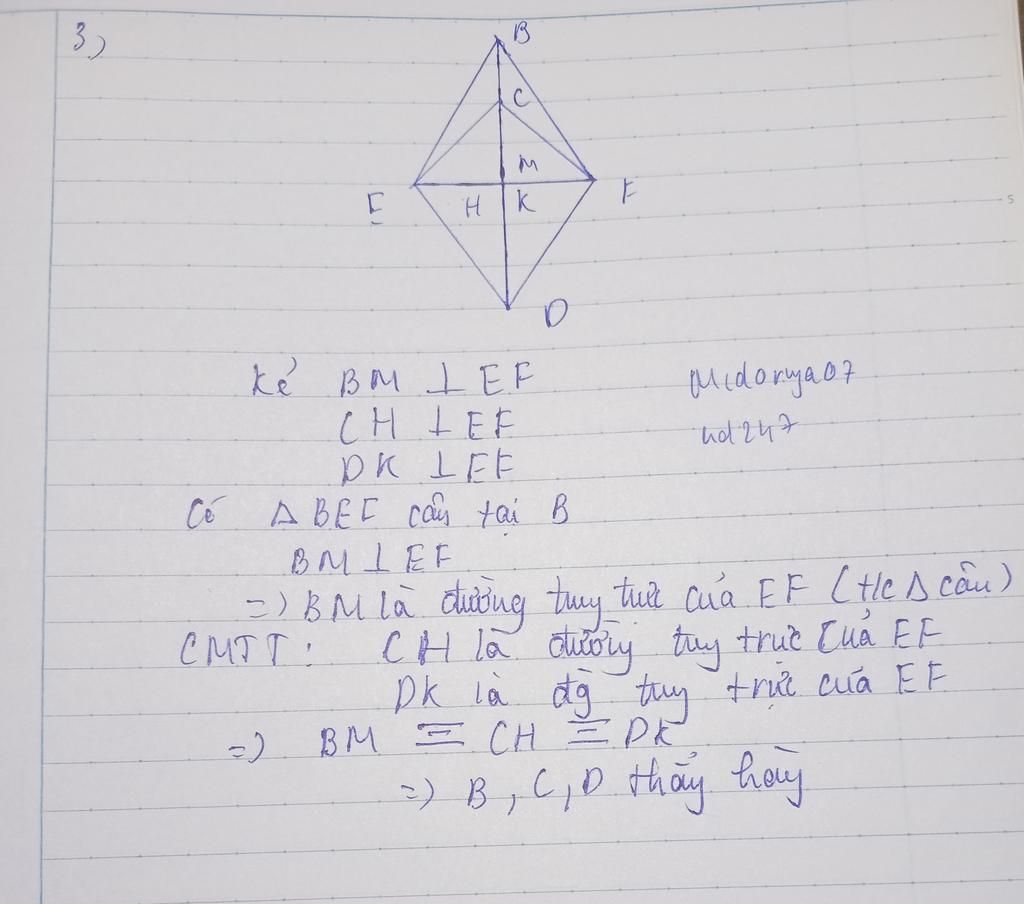 3)
B
C
M
E
H K
F
D
Kẻ BM ⊥ EF
CH ⊥ EF
DK ⊥ EF
Midorya07
hd247
Có Δ BEF cân tại B
BM ⊥ EF
=> BM là đường trung trực của EF (t/c Δ cân)
CMTT: CH là đường trung trực của EF
DK là đg trung trực của EF
=> BM ≡ CH ≡ DK
=> B, C, D thẳng hàng